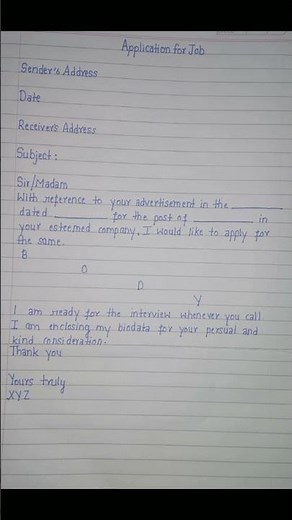 Application for Job
Sender's Address
Date
Receiver's Address
Subject:
Sir/Madam
With reference to your advertisement in the ________
dated ________ for the post of ________ in
your esteemed company, I would like to apply for
the same.
B
O
D
Y
I am ready for the interview whenever you call
I am enclosing my biodata for your persual and
kind consideration.
Thank you
Yours truly
XYZ